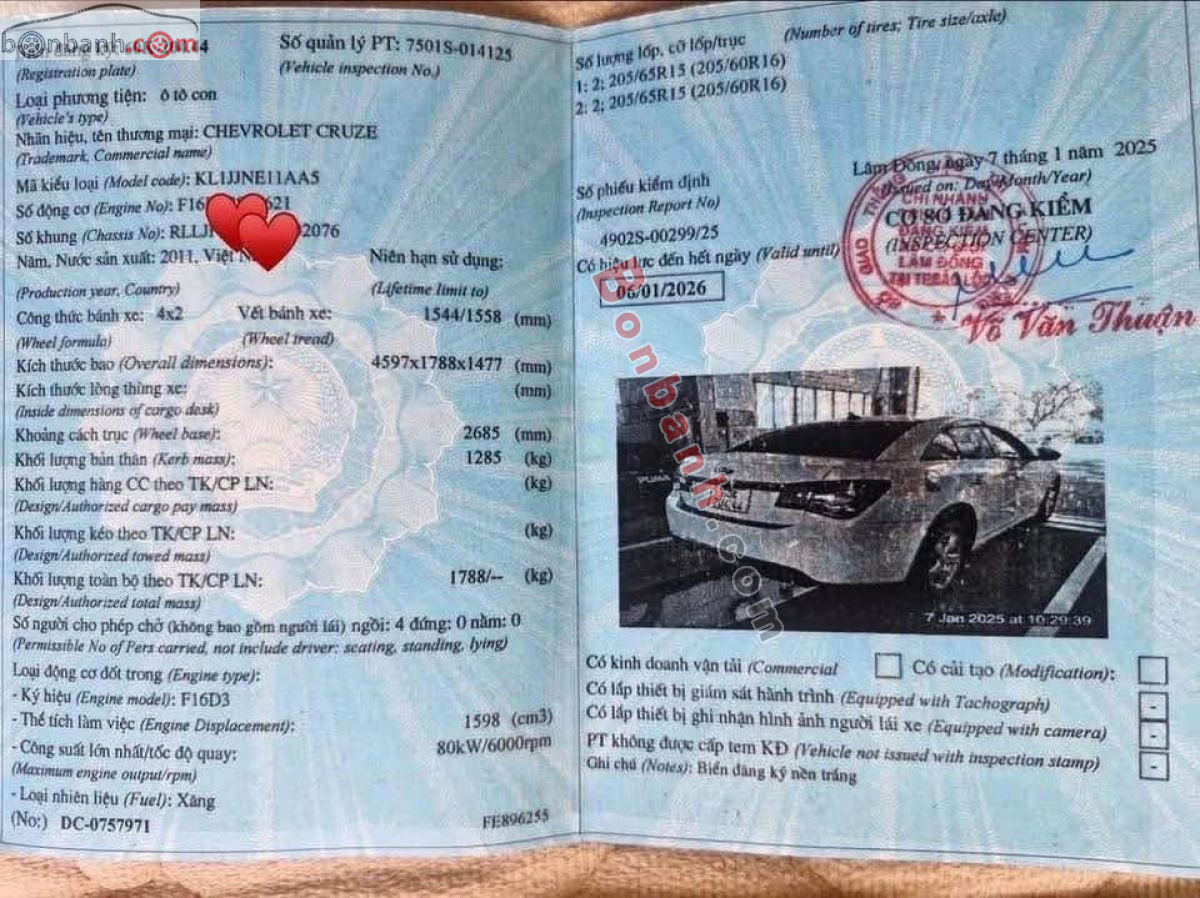 bonbanh.com
Số quản lý PT: 7501S-014125
(Registration plate) (Vehicle inspection No.)
Loại phương tiện: ô tô con
(Vehicle's type)
Nhãn hiệu, tên thương mại: CHEVROLET CRUZE
(Trademark, Commercial name)
Mã kiểu loại (Model code): KL1JJNE11AA5
Số động cơ (Engine No): F16 621
Số khung (Chassis No): RLLJ 2076
Năm, Nước sản xuất: 2011, Việt Niên hạn sử dụng:
(Production year, Country) (Lifetime limit to)
Công thức bánh xe: 4x2 Vết bánh xe: 1544/1558 (mm)
(Wheel formula) (Wheel tread)
Kích thước bao (Overall dimensions): 4597x1788x1477 (mm)
Kích thước lòng thùng xe: (mm)
(Inside dimensions of cargo desk)
Khoảng cách trục (Wheel base): 2685 (mm)
Khối lượng bản thân (Kerb mass): 1285 (kg)
Khối lượng hàng CC theo TK/CP LN: (kg)
(Design/Authorized cargo pay mass)
Khối lượng kéo theo TK/CP LN: (kg)
(Design/Authorized towed mass)
Khối lượng toàn bộ theo TK/CP LN: 1788/-- (kg)
(Design/Authorized total mass)
Số người cho phép chở (không bao gồm người lái) ngồi: 4 đứng: 0 nằm: 0
(Permissible No of Pers carried, not include driver: seating, standing, lying)
Loại động cơ đốt trong (Engine type):
- Ký hiệu (Engine model): F16D3
- Thể tích làm việc (Engine Displacement): 1598 (cm3)
- Công suất lớn nhất/tốc độ quay: 80kW/6000rpm
(Maximum engine output/rpm)
- Loại nhiên liệu (Fuel): Xăng
(No:) DC-0757971 FE896255
Số lượng lốp, cỡ lốp/trục (Number of tires; Tire size/axle)
1: 2; 205/65R15 (205/60R16)
2: 2; 205/65R15 (205/60R16)
Lâm Đồng, ngày 7 tháng 1 năm 2025
(Issued on: Day/Month/Year)
Số phiếu kiểm định
(Inspection Report No)
CƠ SỞ ĐĂNG KIỂM
(INSPECTION CENTER)
4902S-00299/25
Có hiệu lực đến hết ngày (Valid until)
06/01/2026
CHI NHÁNH
ĐĂNG KIỂM
LÂM ĐỒNG
TẠI TP.BẢO LỘC
Võ Văn Thuận
Bonbanh.com
7 Jan 2025 at 10:29:39
Có kinh doanh vận tải (Commercial Có cải tạo (Modification):
Có lắp thiết bị giám sát hành trình (Equipped with Tachograph) -
Có lắp thiết bị ghi nhận hình ảnh người lái xe (Equipped with camera) -
PT không được cấp tem KĐ (Vehicle not issued with inspection stamp) -
Ghi chú (Notes): Biển đăng ký nền trắng